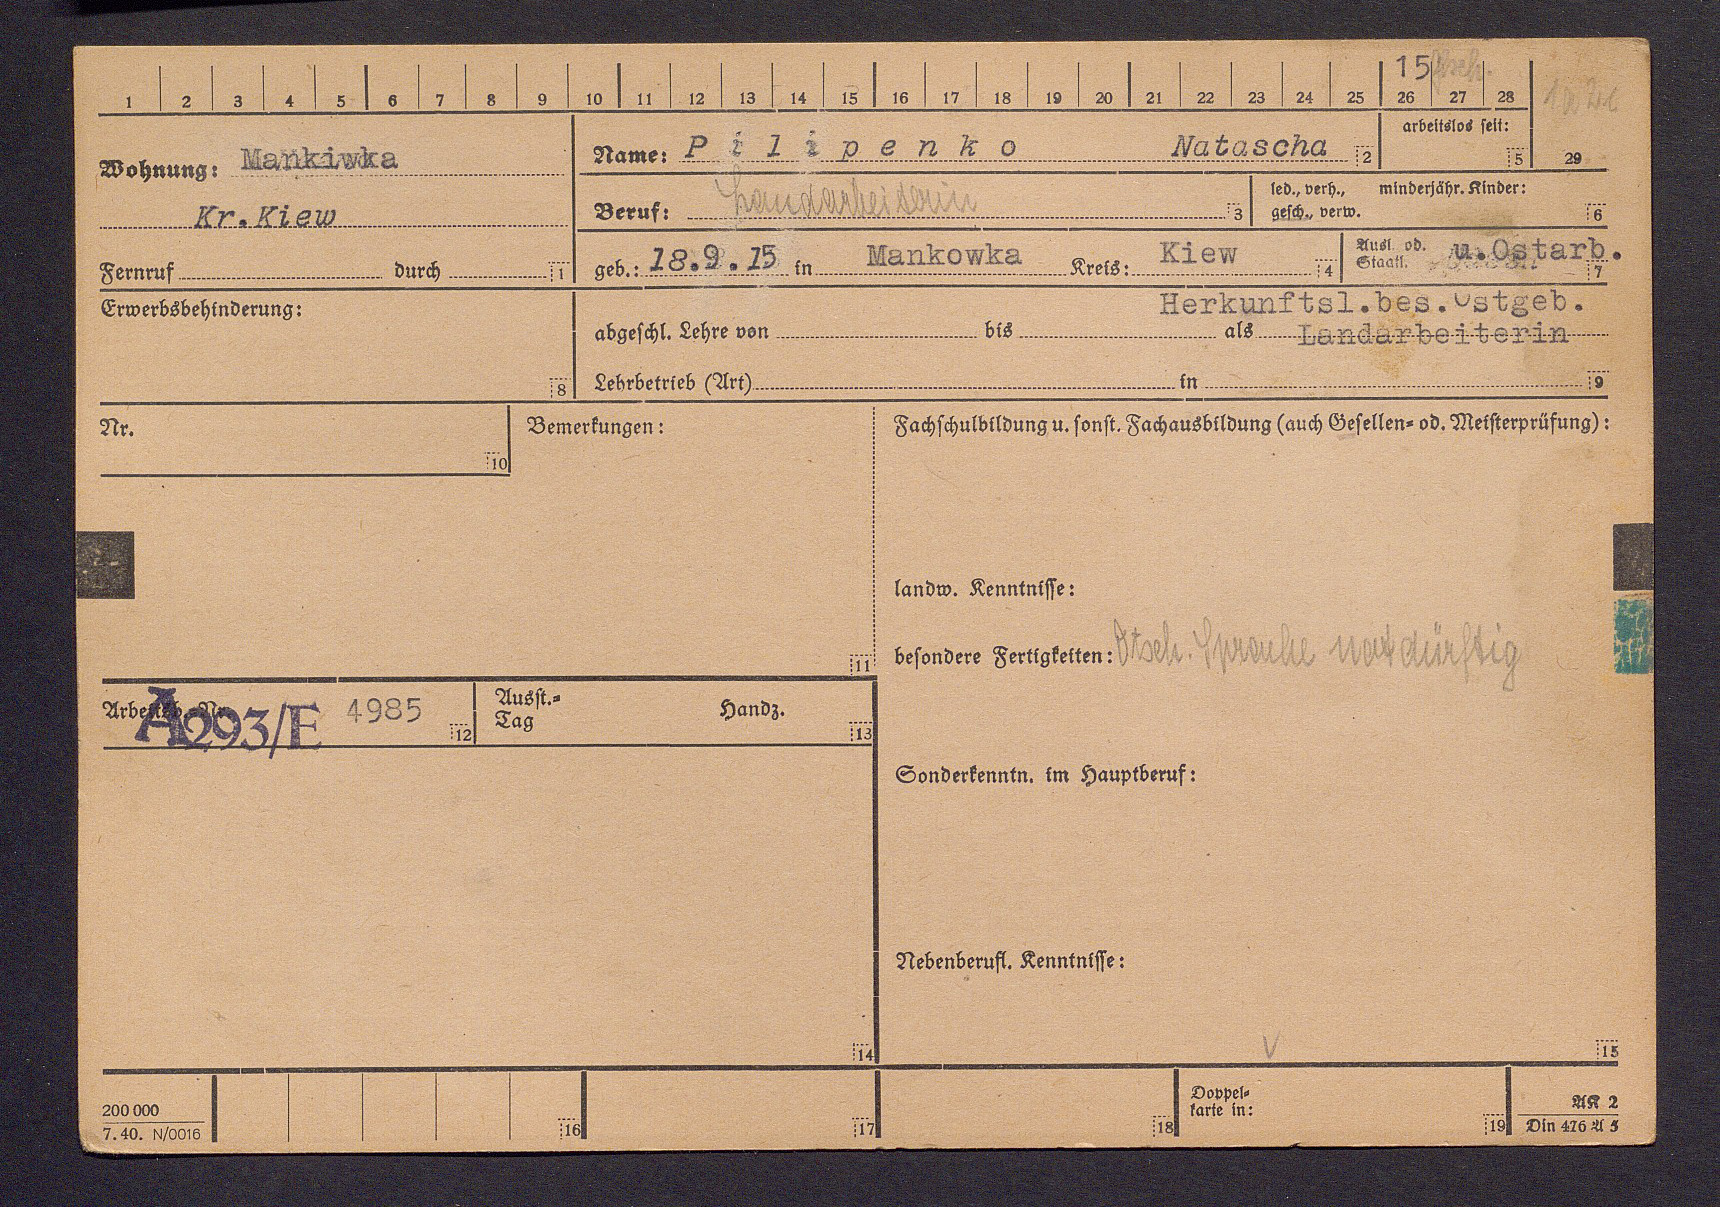 15
1 2 3 4 5 6 7 8 9 10 11 12 13 14 15 16 17 18 19 20 21 22 23 24 25 26 27 28
arbeitslos seit:
5 29
Wohnung: Mankiwka
Kr.Kiew
Fernruf durch 1
Name: P i l i p e n k o Natascha 2
Beruf: Landarbeiterin 3
led., verh., minderjähr. Kinder:
gesch., verw. 6
geb.: 18.9.15 in Mankowka Kreis: Kiew 4
Ausl. od. u.Ostarb.
Staatl. 7
Erwerbsbehinderung:
8
Herkunftsl.bes.Ostgeb.
abgeschl. Lehre von bis als Landarbeiterin
Lehrbetrieb (Art) in 9
Nr.
10
Bemerkungen:
11
Fachschulbildung u. sonst. Fachausbildung (auch Gesellen= od. Meisterprüfung):
landw. Kenntnisse:
besondere Fertigkeiten: Dtsch. Sprache notdürftig
Arbeitsb.-Nr. A293/E 4985 12
Ausst.= Handz.
Tag 13
Sonderkenntn. im Hauptberuf:
Nebenberufl. Kenntnisse:
14
V
15
200 000
7. 40. N/0016
16
17
18
Doppel=
karte in:
19
AK 2
Din 476 A 5